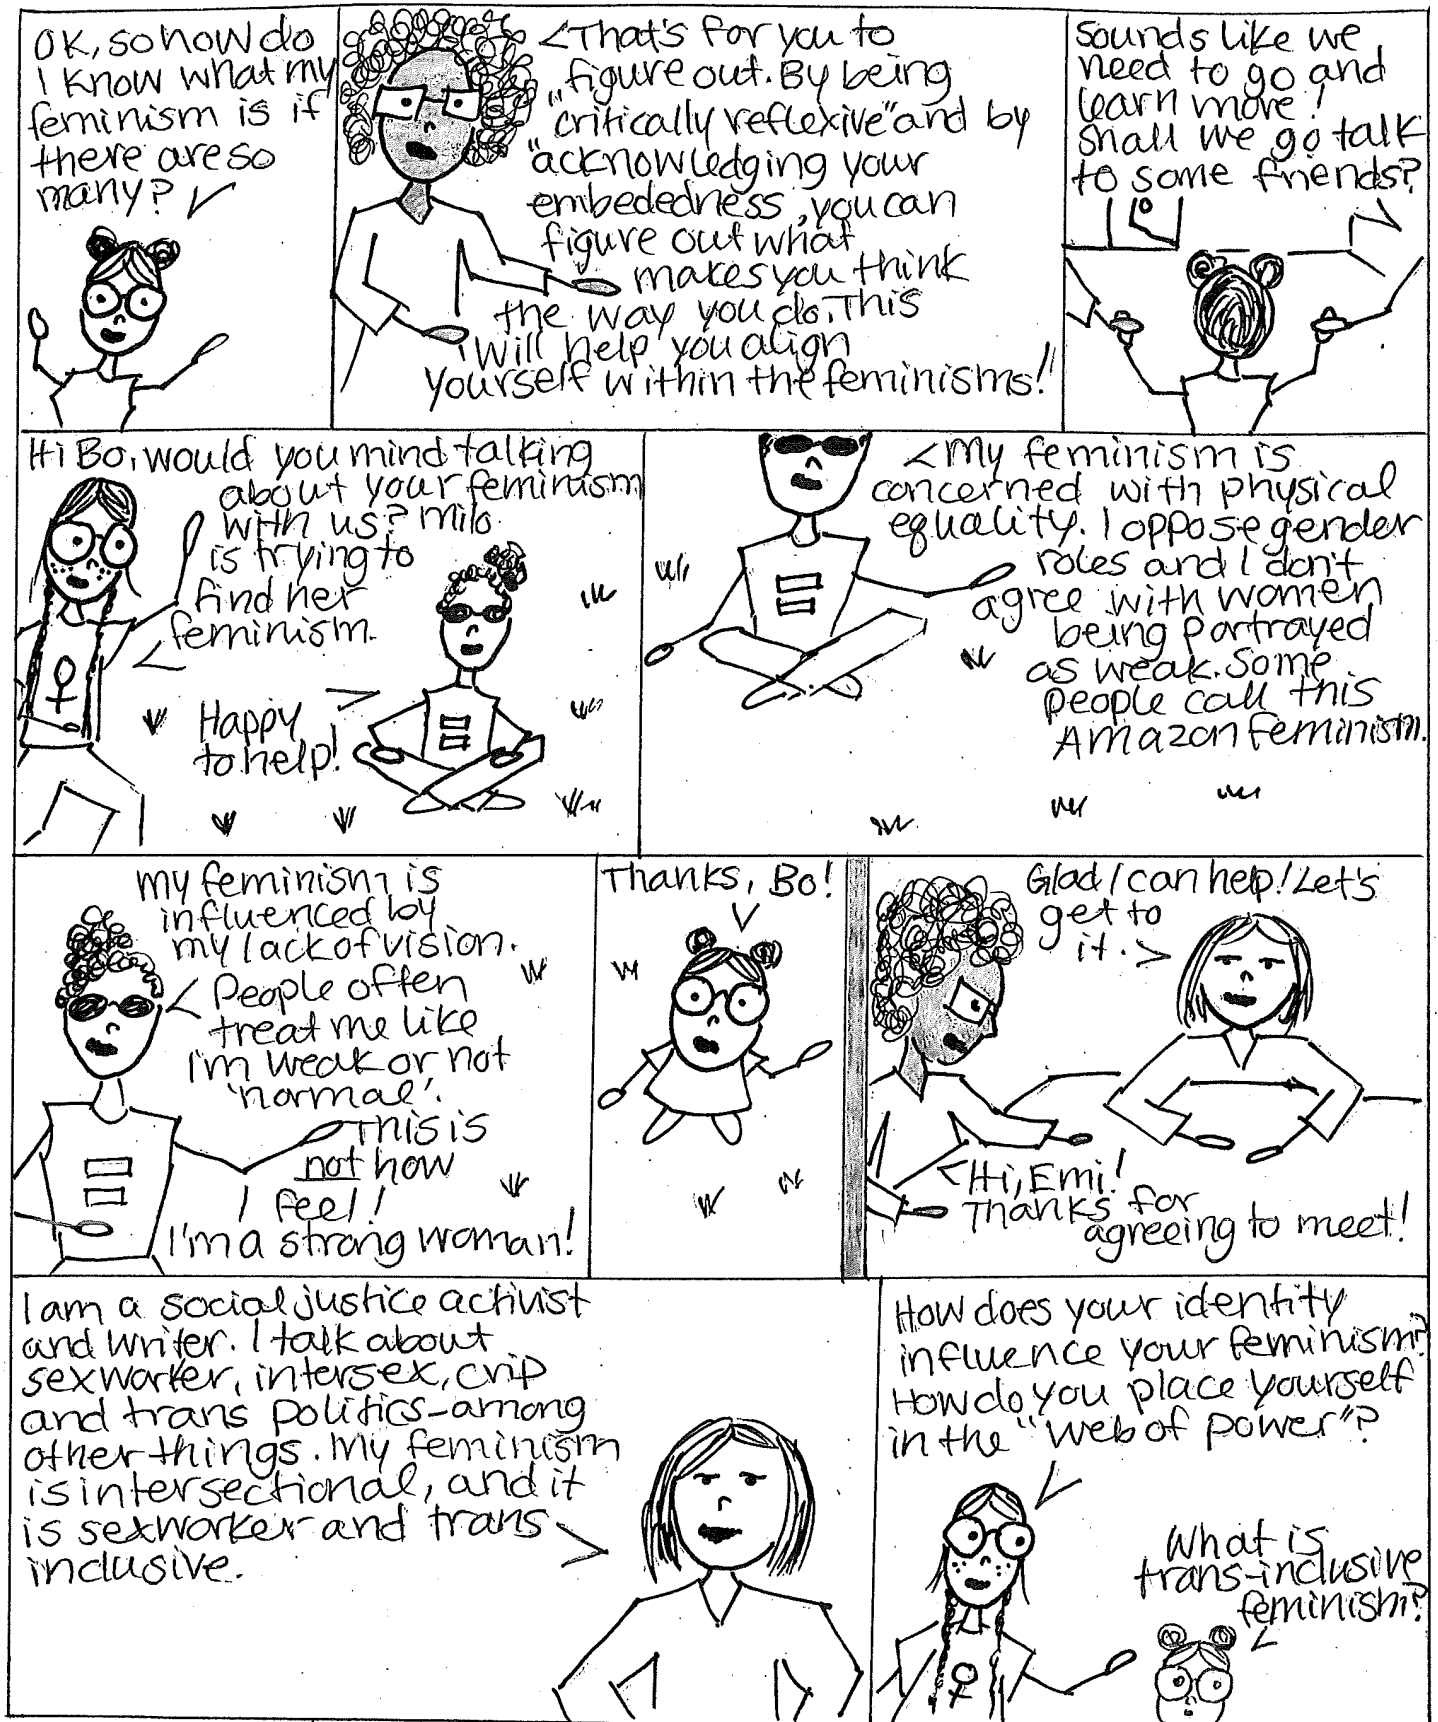 OK, so how do
I know what my
feminism is if
there are so
many?
That's for you to
figure out. By being
"critically reflexive" and by
"acknowledging your
embededness, you can
figure out what
makes you think
the way you do. This
will help you align
yourself within the feminisms!"
Sounds like we
need to go and
learn more!
Shall we go talk
to some friends?
Hi Bo, would you mind talking
about your feminism
with us? Milo
is trying to
find her
feminism.
Happy
to help!
My feminism is
concerned with physical
equality. I oppose gender
roles and I don't
agree with women
being portrayed
as weak. Some
people call this
Amazon feminism.
My feminism is
influenced by
my lack of vision.
People often
treat me like
I'm weak or not
'normal'.
This is
not how
I feel!
I'm a strong woman!
Thanks, Bo!
Glad I can help! Let's
get to
it.
Hi, Emi!
Thanks for
agreeing to meet!
I am a social justice activist
and writer. I talk about
sexworker, intersex, crip
and trans politics-among
other things. My feminism
is intersectional, and it
is sexworker and trans
inclusive.
How does your identity
influence your feminism?
How do you place yourself
in the "web of power"?
What is
trans-inclusive
feminism?